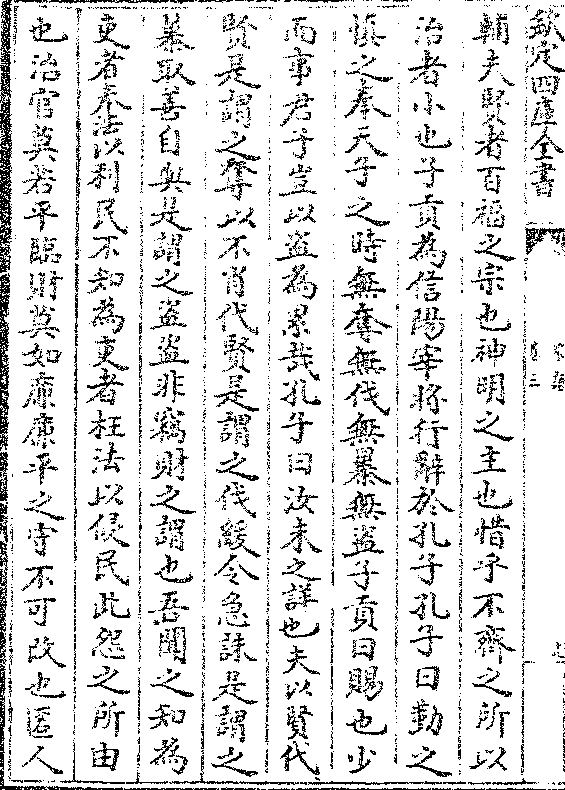 欽定四庫全書
輔夫賢者百福之宗也神明之主也惜乎不齊之所以
治者小也子貢為信陽宰將行辭於孔子孔子曰勤之
慎之奉天子之時無奪無伐無暴無盜子貢曰賜也少
而事君子豈以盜為累哉孔子曰汝未之詳也夫以賢代
賢是謂之奪以不肖代賢是謂之伐緩令急誅是謂之
暴取善自與是謂之盜盜非竊財之謂也吾聞之知為
吏者奉法以利民不知為吏者枉法以侵民此怨之所由
也治官莫若平臨財莫如廉廉平之守不可改也匿人